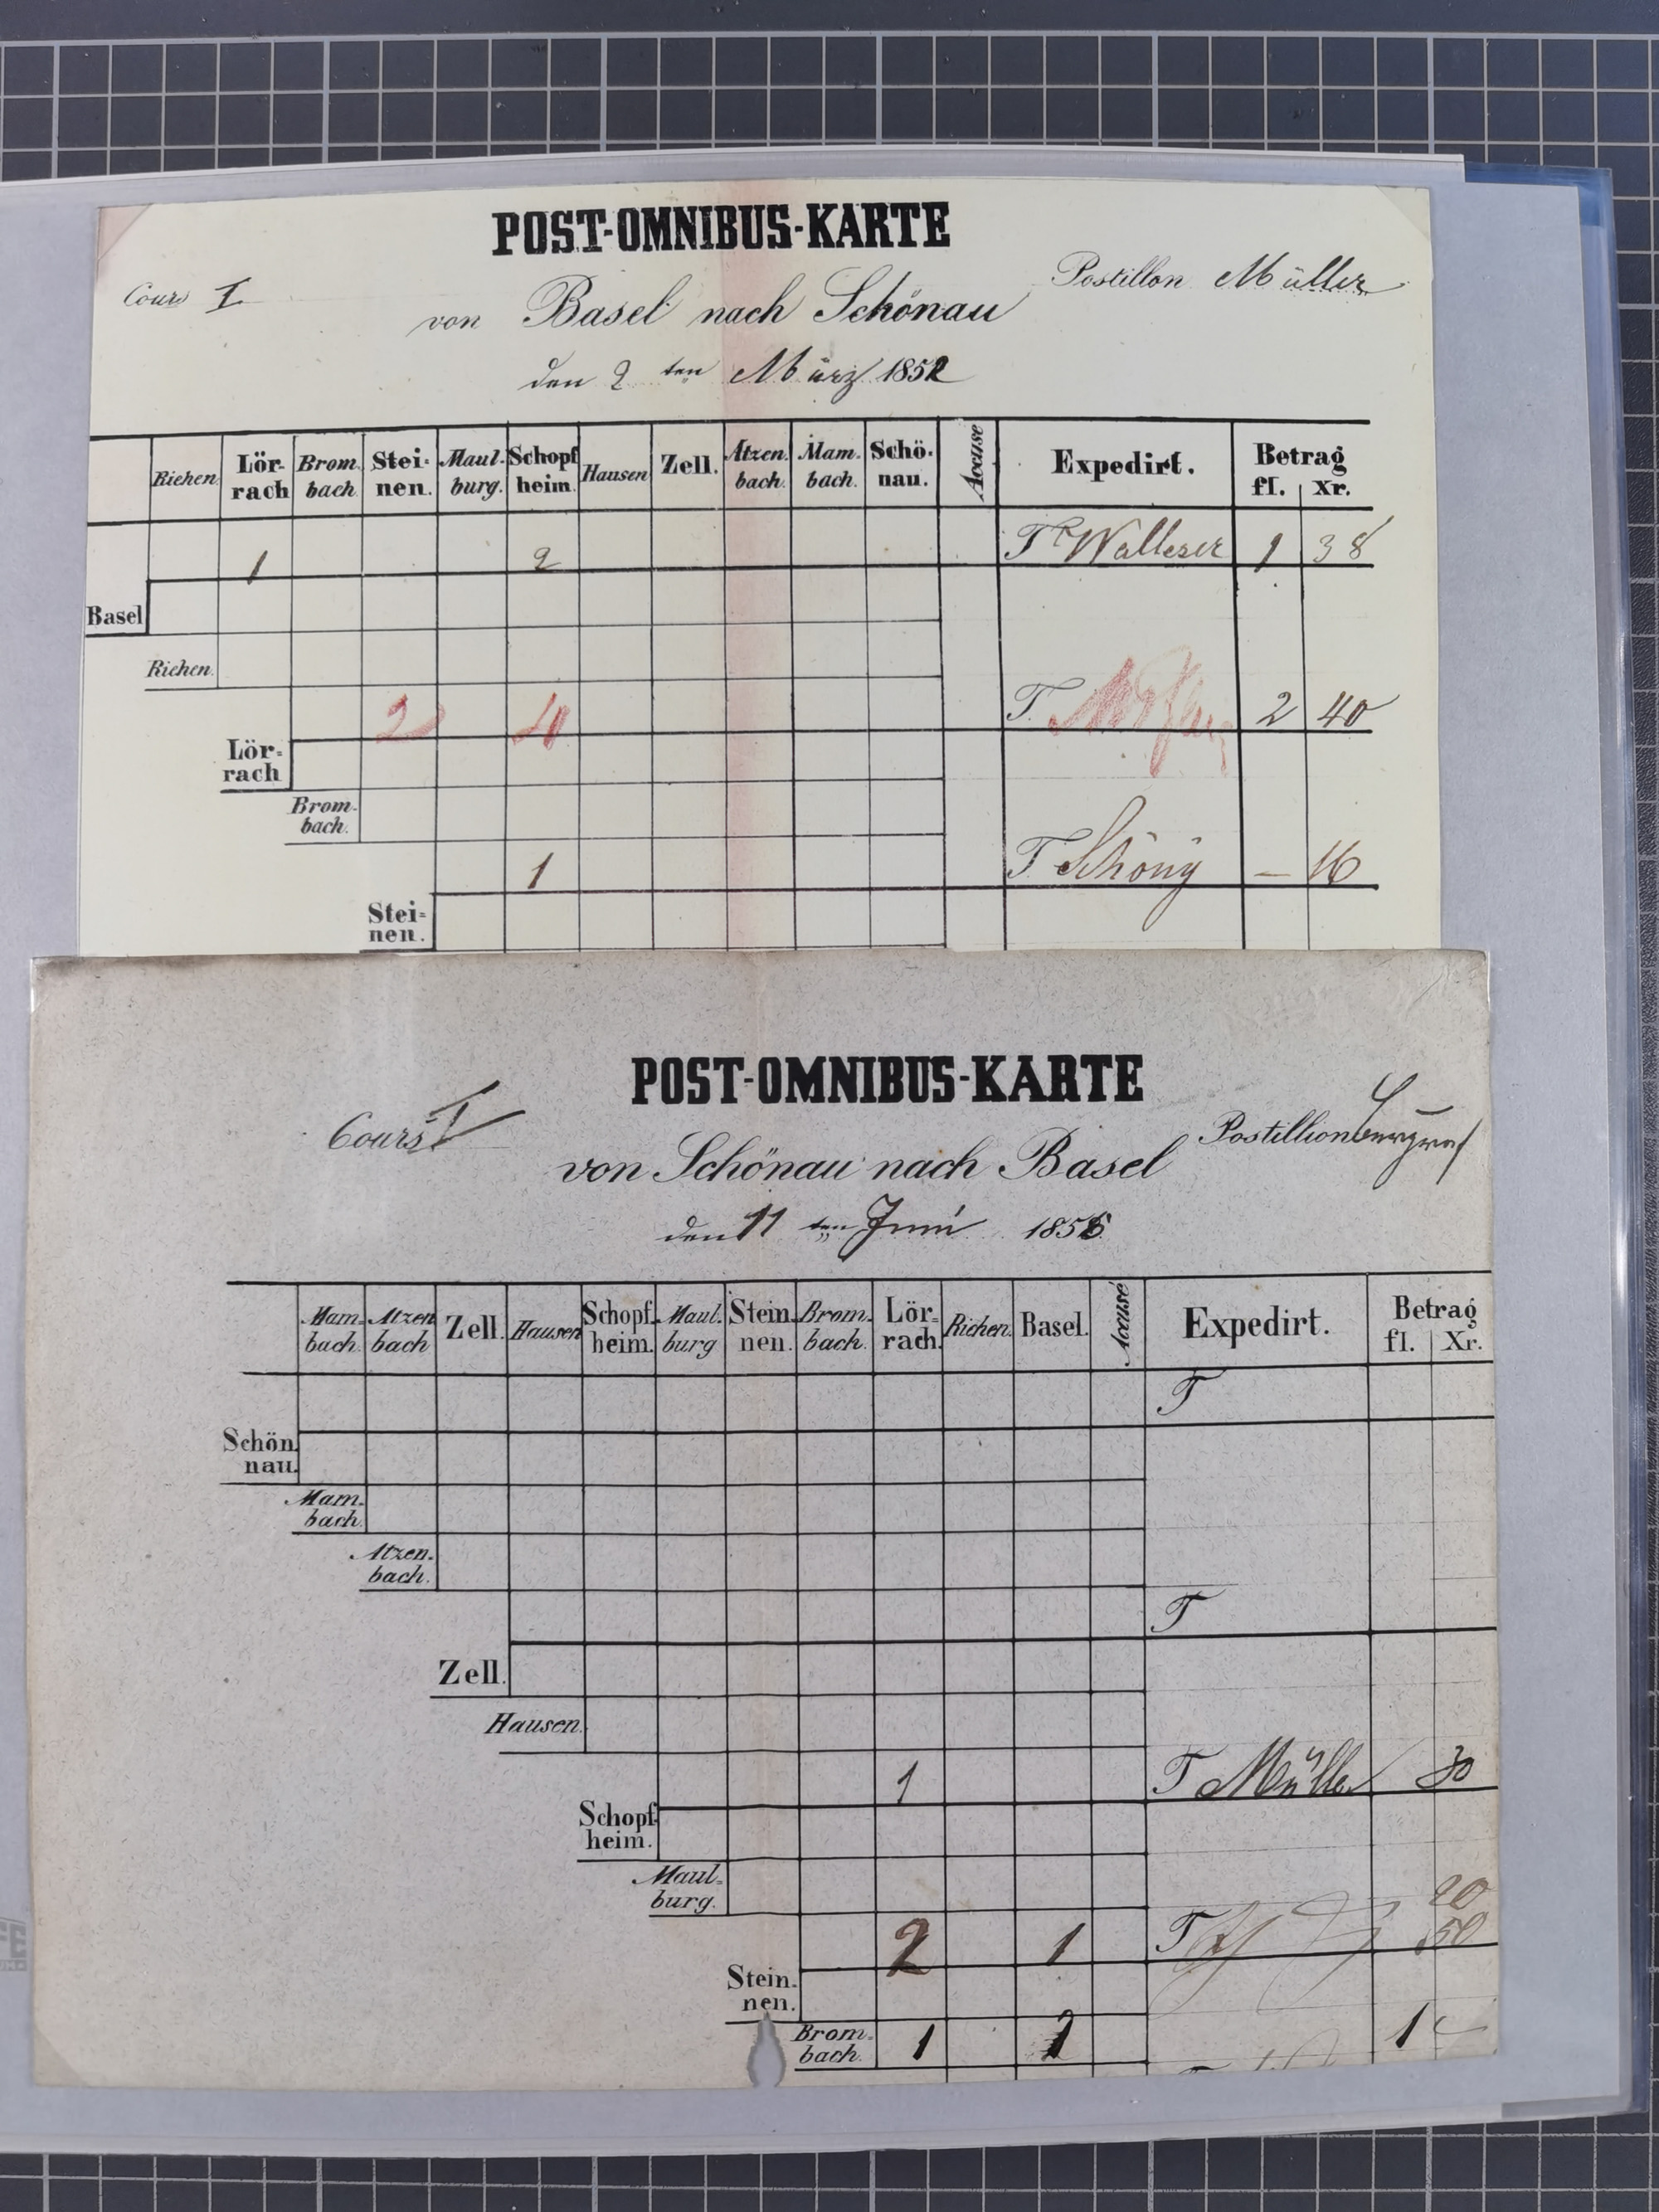 POST-OMNIBUS-KARTE
Cours I
Postillon Müller
von Basel nach Schönau
den 2 ten März 1852
Richen Lör- rach Brom. bach Stei- nen. Maul. burg. Schopf heim. Hausen Zell. Atzen. bach. Mam. bach. Schö- nau. Accuse Expedirt. Betrag fl. Xr.
1 2 T Wallerer 1 38
Basel
Richen.
2 T. 2 40
Lör-
rach
Brom-
bach.
1 T Schönig — 16
Stei-
nen.
POST-OMNIBUS-KARTE
Cours I
Postillion
von Schönau nach Basel
den 11 ten Juni 1856
Mam- bach. Atzen bach Zell. Hausen Schopf. heim. Maul. burg Stein. nen. Brom. bach. Lör- rach. Richen. Basel. Accusé Expedirt. Betrag fl. Xr.
T
Schön
nau.
Mam-
bach.
Atzen-
bach.
T
Zell.
Hausen.
1 T Müller 30
Schopf
heim.
Maul-
burg.
20
2 1 T 50
Stein.
nen.
Brom- 1 1
bach.